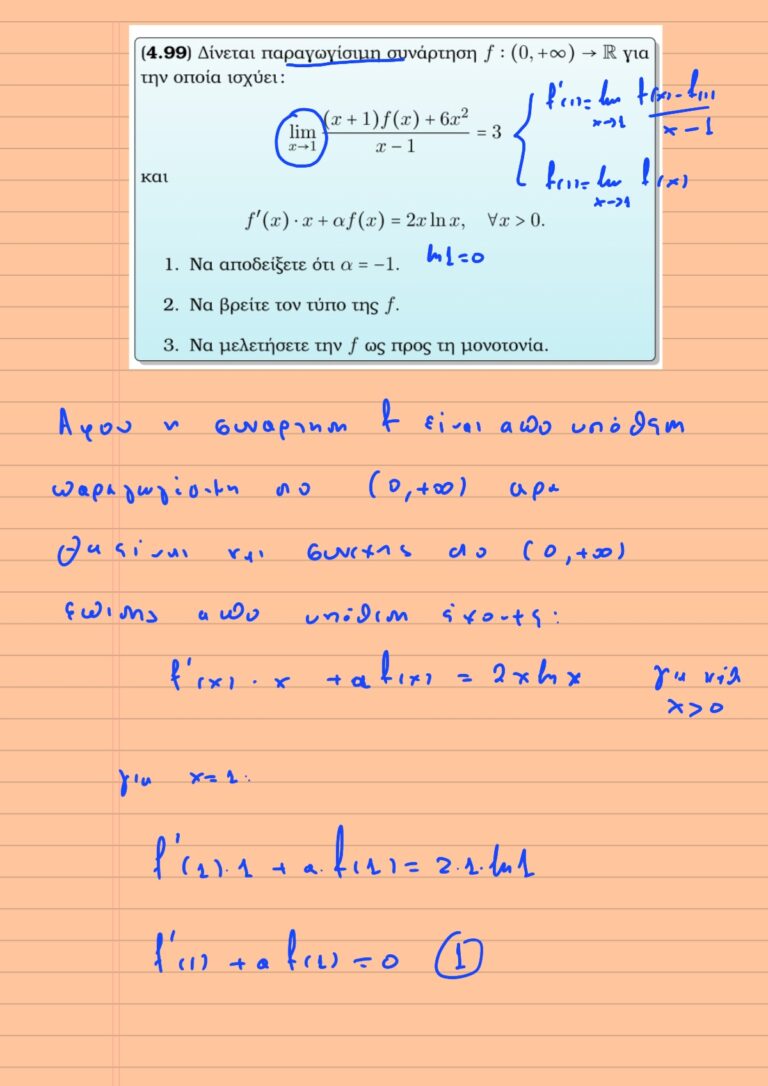 (4.99) Δίνεται παραγωγίσιμη συνάρτηση f : (0, +∞) → ℝ για
την οποία ισχύει:
lim x→1 ((x + 1)f(x) + 6x²)/(x − 1) = 3
f'(1) = lim x→1 (f(x) - f(1))/(x - 1)
f(1) = lim x→1 f(x)
και
f′(x) · x + αf(x) = 2x ln x, ∀x > 0.
1. Να αποδείξετε ότι α = −1.
ln1=0
2. Να βρείτε τον τύπο της f.
3. Να μελετήσετε την f ως προς τη μονοτονία.
Αφου η συναρτηση f είναι απο υπόθεση
παραγωγίσιμη στο (0,+∞) αρα
θα είναι και συνεχης στο (0,+∞)
επισης απο υπόθεση έχουμε:
f'(x) · x + a f(x) = 2x ln x για κάθε
x>0
για x=1:
f'(1)·1 + a·f(1) = 2·1·ln1
f'(1) + a f(1) = 0 ①